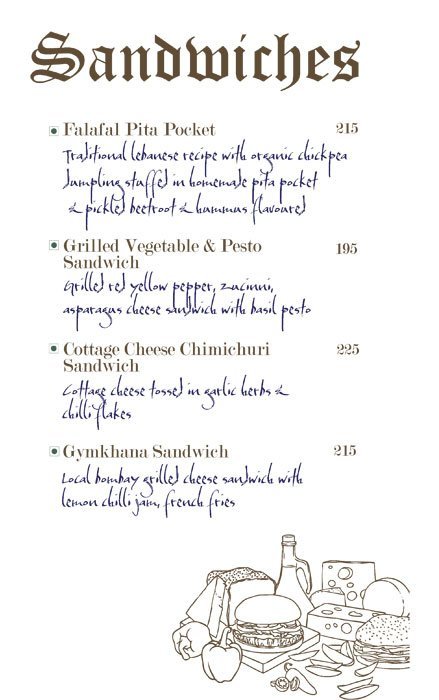 Sandwiches
Falafal Pita Pocket 215
Traditional lebanese recipe with organic chickpea
dumpling stuffed in homemade pita pocket
& pickled beetroot & hummus flavoured
Grilled Vegetable & Pesto 195
Sandwich
Grilled red yellow pepper, zucinni,
asparagus cheese sandwich with basil pesto
Cottage Cheese Chimichuri 225
Sandwich
Cottage cheese tossed in garlic herbs &
chilli flakes
Gymkhana Sandwich 215
Local bombay grilled cheese sandwich with
lemon chilli jam, french fries